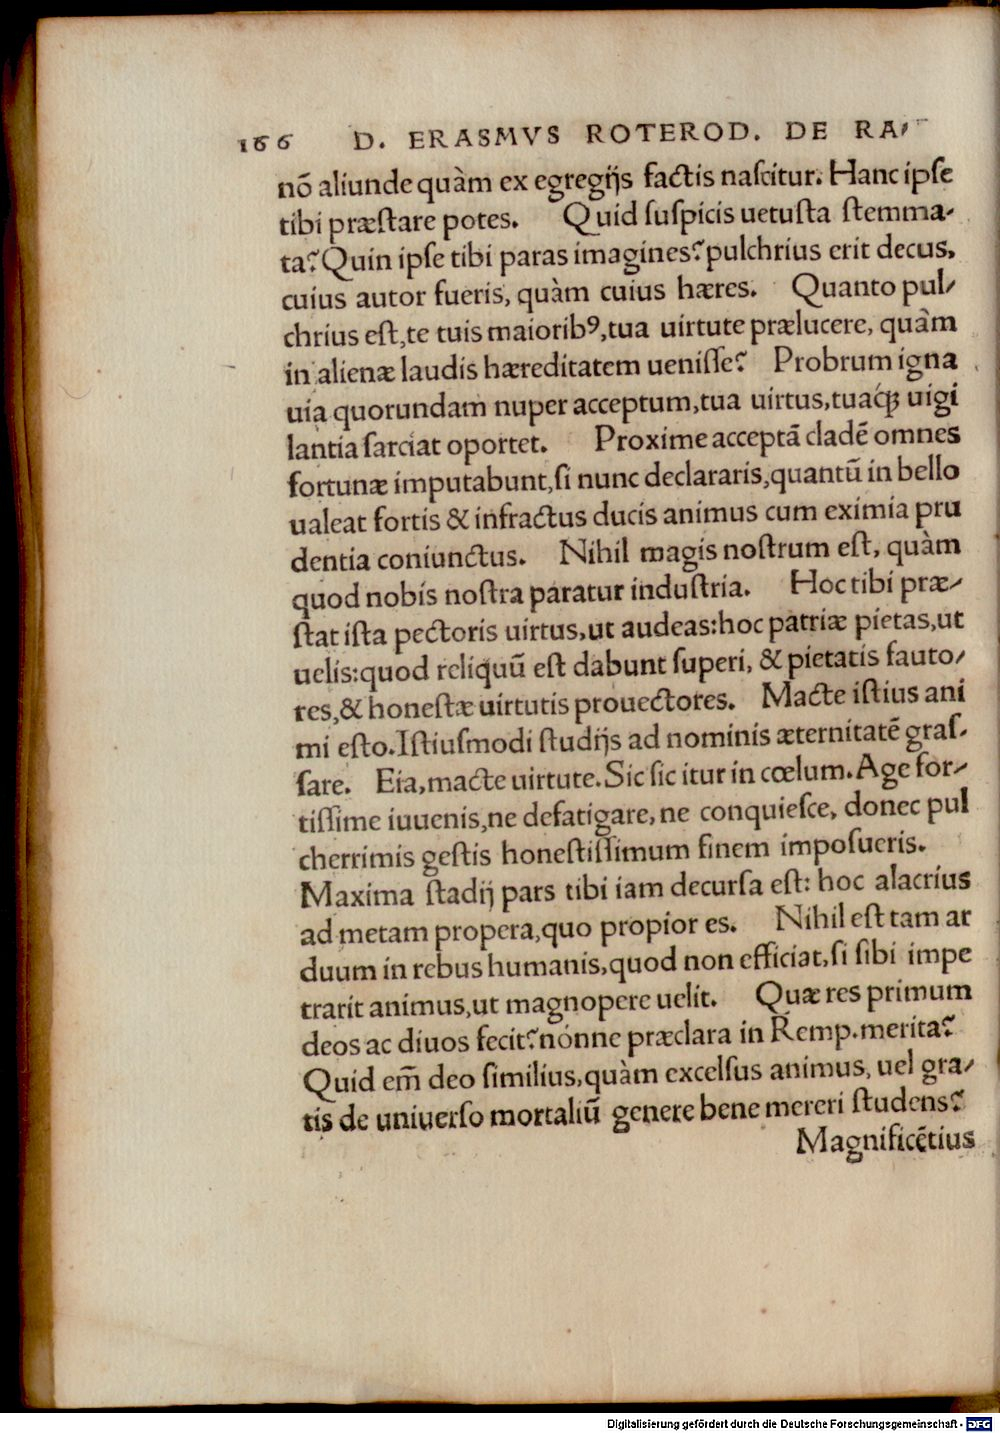 166 D. ERASMVS ROTEROD. DE RA⸗
nō aliunde quàm ex egregijs factis nascitur. Hanc ipse
tibi præstare potes. Quid suspicis uetusta stemma-
ta? Quin ipse tibi paras imagines? pulchrius erit decus,
cuius autor fueris, quàm cuius hæres. Quanto pul⸗
chrius est, te tuis maiorib⁹, tua uirtute prælucere, quàm
in alienæ laudis hæreditatem uenisse? Probrum igna
uia quorundam nuper acceptum, tua uirtus, tuaq́ꝫ uigi
lantia sarciat oportet. Proxime acceptā cladē omnes
fortunæ imputabunt, si nunc declararis, quantū in bello
ualeat fortis & infractus ducis animus cum eximia pru
dentia coniunctus. Nihil magis nostrum est, quàm
quod nobis nostra paratur industria. Hoc tibi præ⸗
stat ista pectoris uirtus, ut audeas: hoc patriæ pietas, ut
uelis: quod reliquū est dabunt superi, & pietatis fauto⸗
res, & honestæ uirtutis prouectores. Macte istius ani
mi esto. Istiusmodi studijs ad nominis æternitatē gras-
sare. Eia, macte uirtute. Sic sic itur in cœlum. Age for⸗
tissime iuuenis, ne defatigare, ne conquiesce, donec pul
cherrimis gestis honestissimum finem imposueris.
Maxima stadij pars tibi iam decursa est: hoc alacrius
ad metam propera, quo propior es. Nihil est tam ar
duum in rebus humanis, quod non efficiat, si sibi impe
trarit animus, ut magnopere uelit. Quæ res primum
deos ac diuos fecit? nónne præclara in Remp. merita?
Quid em̄ deo similius, quàm excelsus animus, uel gra⸗
tis de uniuerso mortaliū genere bene mereri studens?
Magnificētius
Digitalisierung gefördert durch die Deutsche Forschungsgemeinschaft - DFG